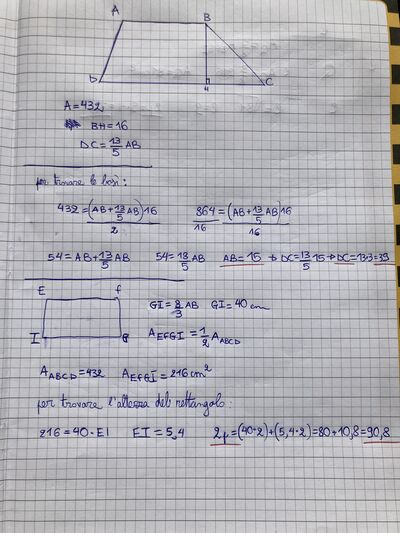 A B
D H C
A=432
BH=16
DC=13/5 AB
per trovare le basi:
432=(AB+13/5 AB)16/2 864/16=(AB+13/5 AB)16/16
54=AB+13/5 AB 54=18/5 AB AB=15 → DC=13/5 15 → DC=13·3=39
E F
GI=8/3 AB GI=40 cm
I G
A EFGI=1/2 A ABCD
A ABCD=432 A EFGI=216 cm²
per trovare l'altezza del rettangolo:
216=40·EI EI=5,4 2p=(40·2)+(5,4·2)=80+10,8=90,8